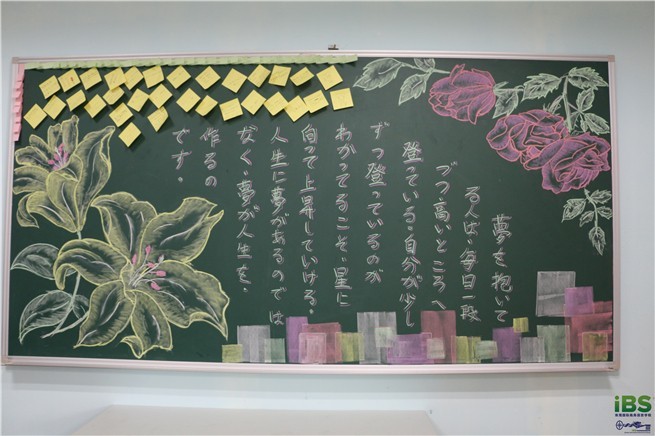 夢を抱いて
る人は、毎日一段
づつ高いところへ
登っている。自分が少し
ずつ登っているのが
わかってるこそ、星に
向って上昇していける。
人生に夢があるのでは
なく、夢が人生を、
作るの
です。
iBS